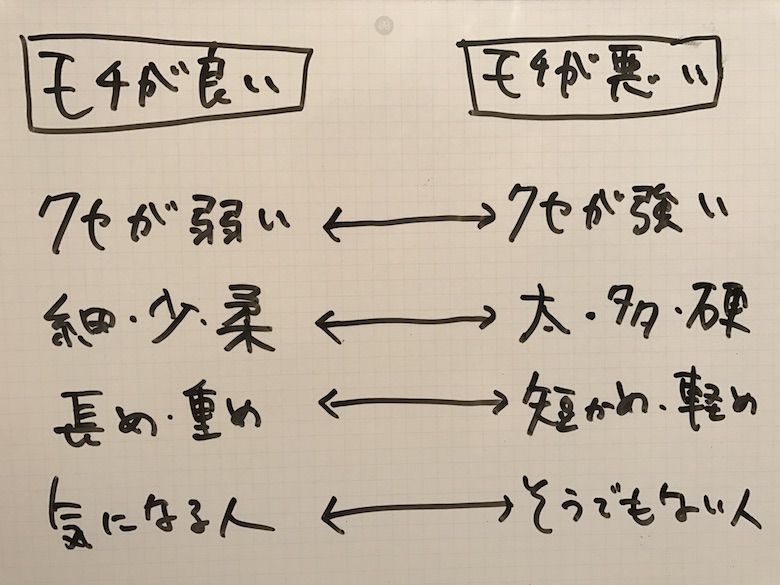 モチが良い モチが悪い
クセが弱い ←→ クセが強い
細・少・柔 ←→ 太・多・硬
長め・重め ←→ 短かめ・軽め
気になる人 ←→ そうでもない人